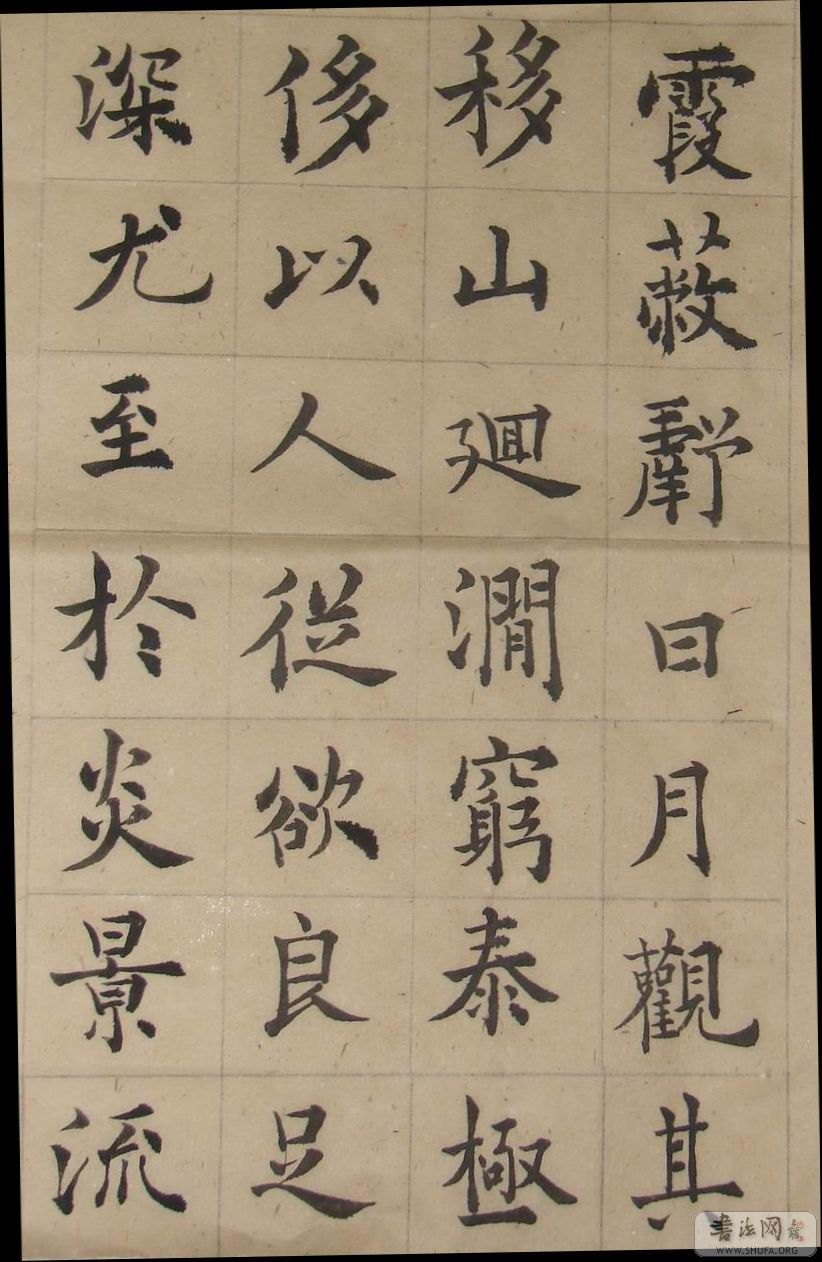 霞蔽虧日月觀其
移山廻澗窮泰極
侈以人從欲良足
深尤至於炎景流
書法网
WWW.SHUFA.ORG